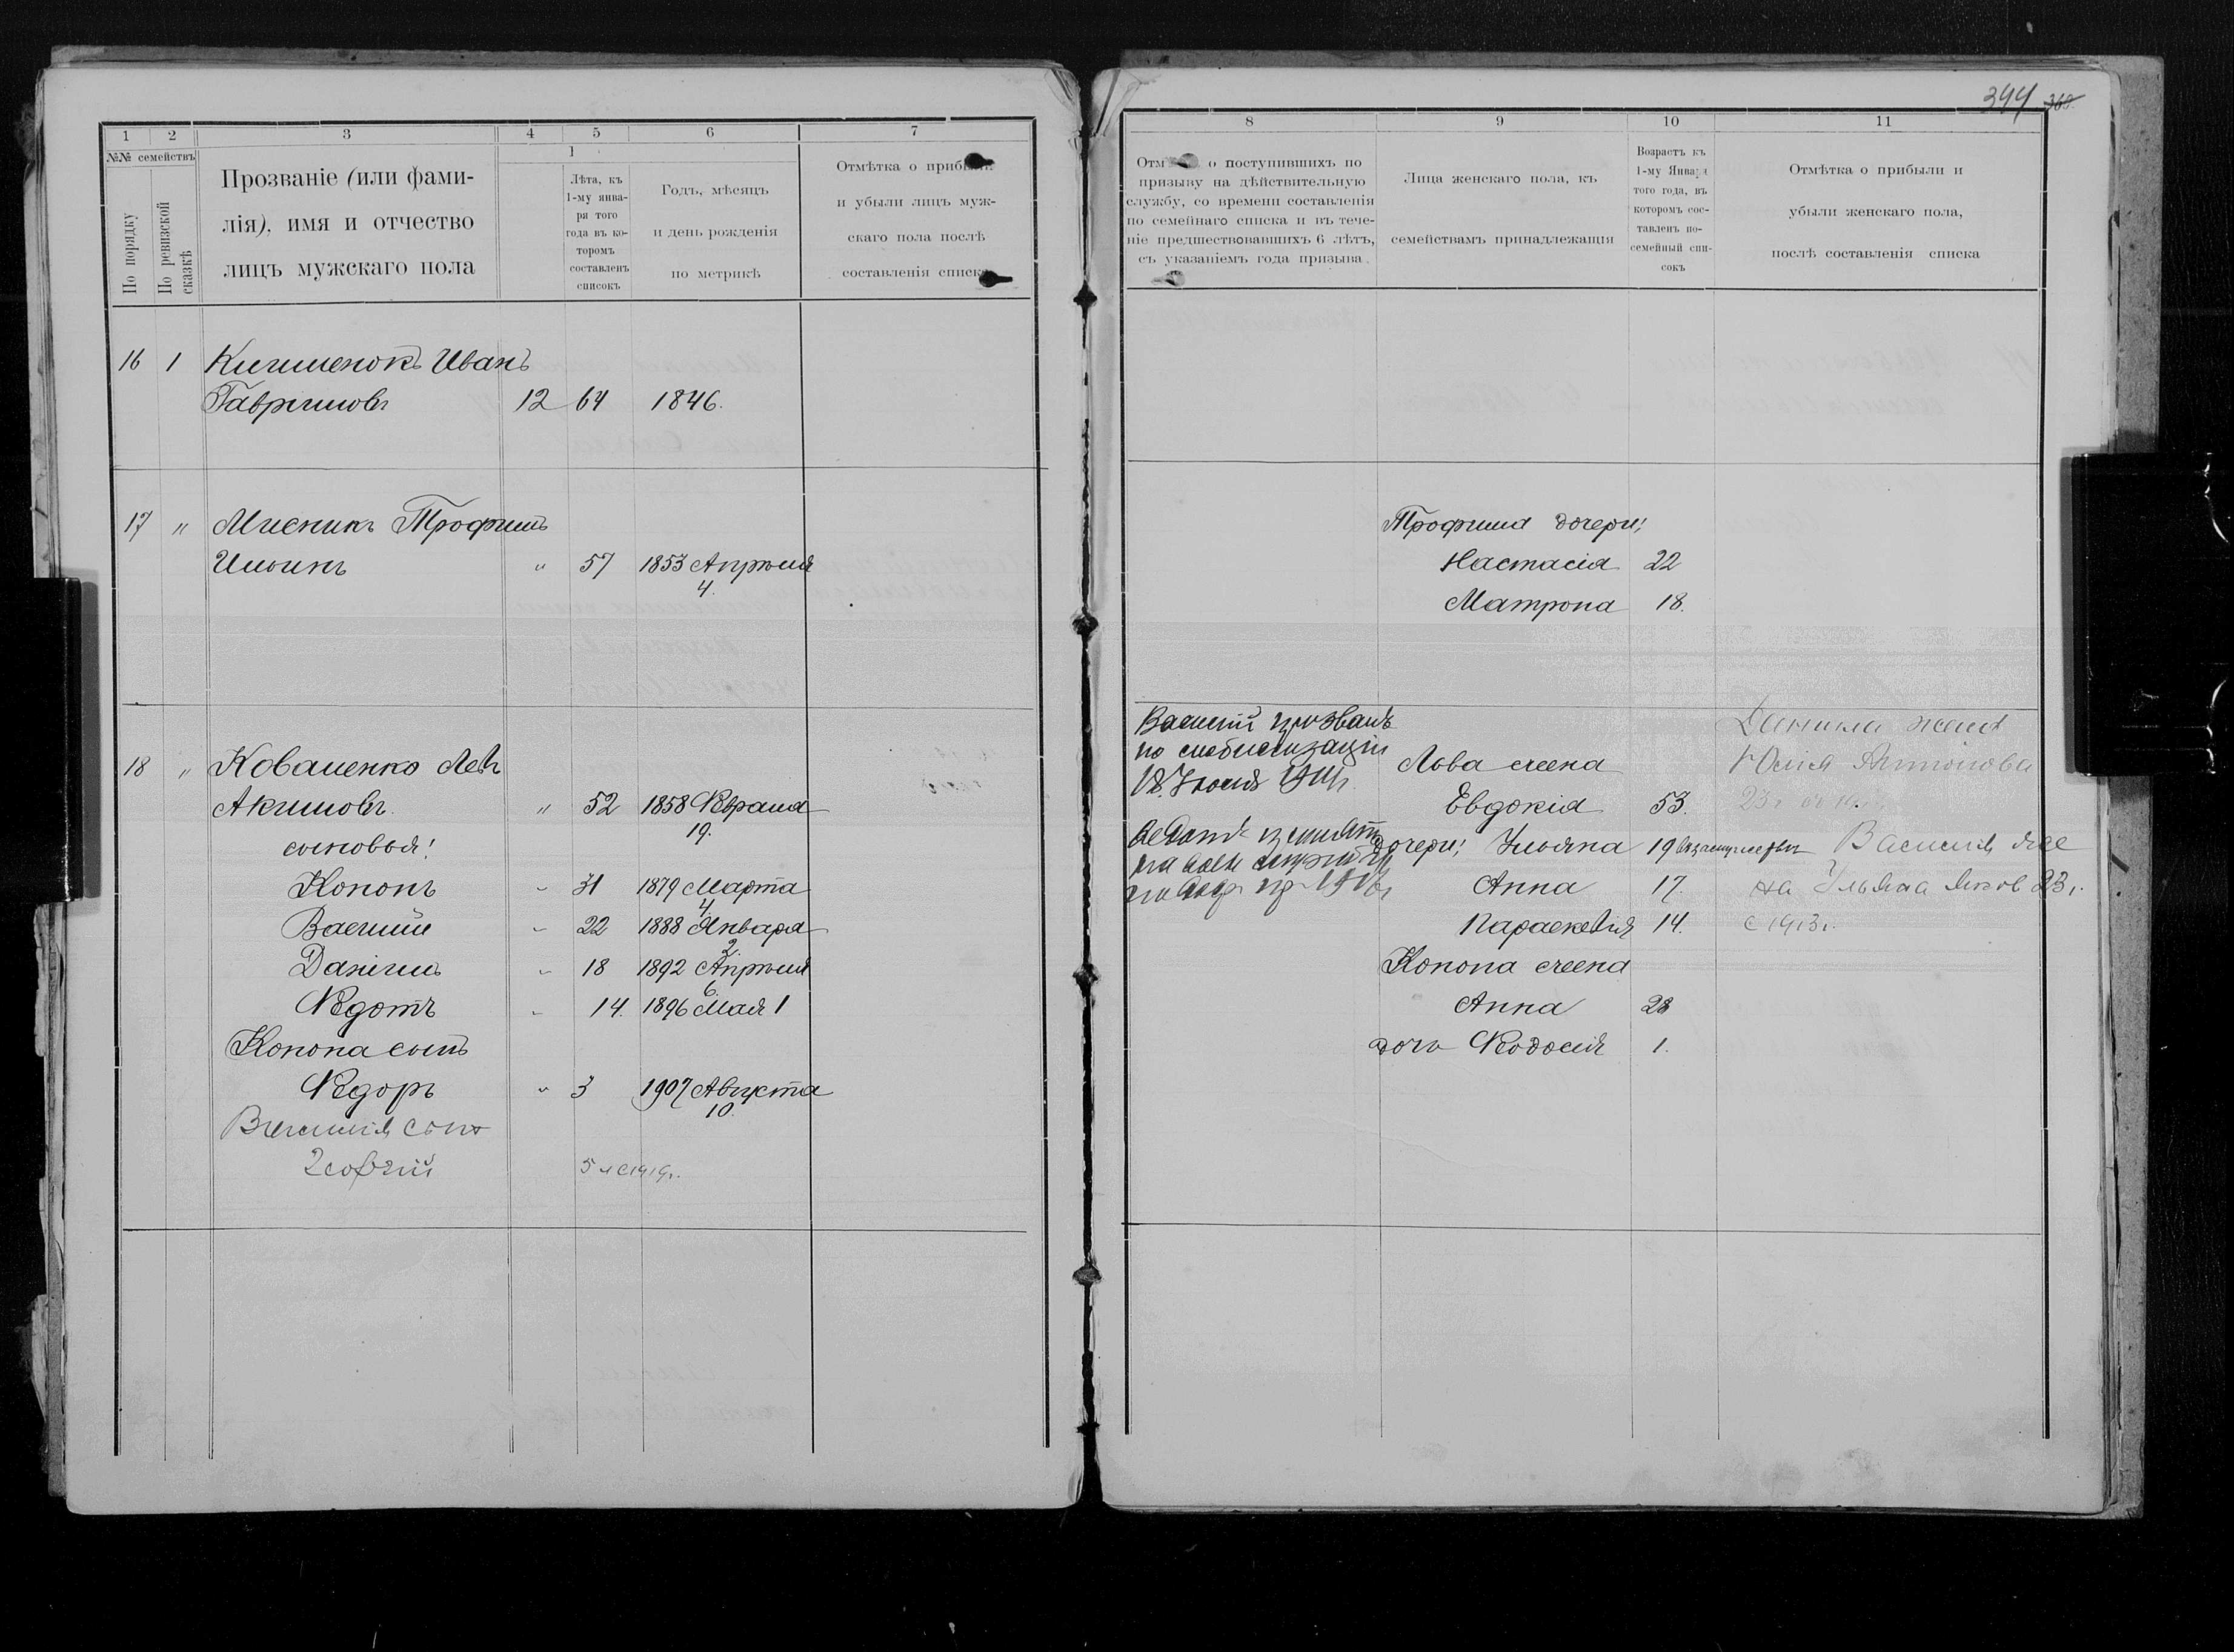 1 2 3 4 5 6 7
№№ семействъ
По порядку
По ревизской сказкѣ
Прозваніе (или фами-
лія), имя и отчество
лицъ мужскаго пола
1
Лѣта, къ
1-му янва-
ря того
года въ ко-
торомъ
составленъ
списокъ
Годъ, мѣсяцъ
и день рожденія
по метрикѣ
Отмѣтка о прибыли
и убыли лицъ муж-
скаго пола послѣ
составленія списка
16 1 Иванъ
Гавриловъ 12 64 1846.
17 " Мисникъ Трофимъ
Ильинъ " 57 1853 Апрѣля
4.
18 " Коваленко Левъ
Акимовъ. " 52 1858 Февраля
19.
сыновья:
Кононъ " 31 1879 Марта
4.
Василій " 22 1888 Января
2.
Даніилъ " 18 1892 Апрѣля
6.
Ѳедотъ " 14. 1896 Мая 1
Конона сынъ
Ѳедоръ " 3 1907 Августа
10.
Василія сынъ
5 л с 1919г.
344 368.
8 9 10 11
Отм о поступившихъ по
призыву на дѣйствительную
службу, со времени составленія
по семейнаго списка и въ тече-
ніе предшествовавшихъ 6 лѣтъ,
съ указаніемъ года призыва.
Лица женскаго пола, къ
семействамъ принадлежащія
Возрастъ къ
1-му Января
того года, въ
которомъ сос-
тавленъ по-
семейный спи-
сокъ
Отмѣтка о прибыли и
убыли женскаго пола,
послѣ составленія списка
Трофима дочери:
Настасія 22
Матрона 18.
Василій призванъ
по мобилизаціи
18 Іюля 1914г.
Ѳедотъ принятъ
на воен службу
Льва жена
Евдокія 53.
дочери: Ульяна 19 въ замужествѣ
Анна 17.
Параскевія 14.
Конона жена
Анна 28
дочь Ѳеодосія 1.
Данила жена
Юлія Антонова
23г
Василія же
на Ульяна 23г.
с 1913г.